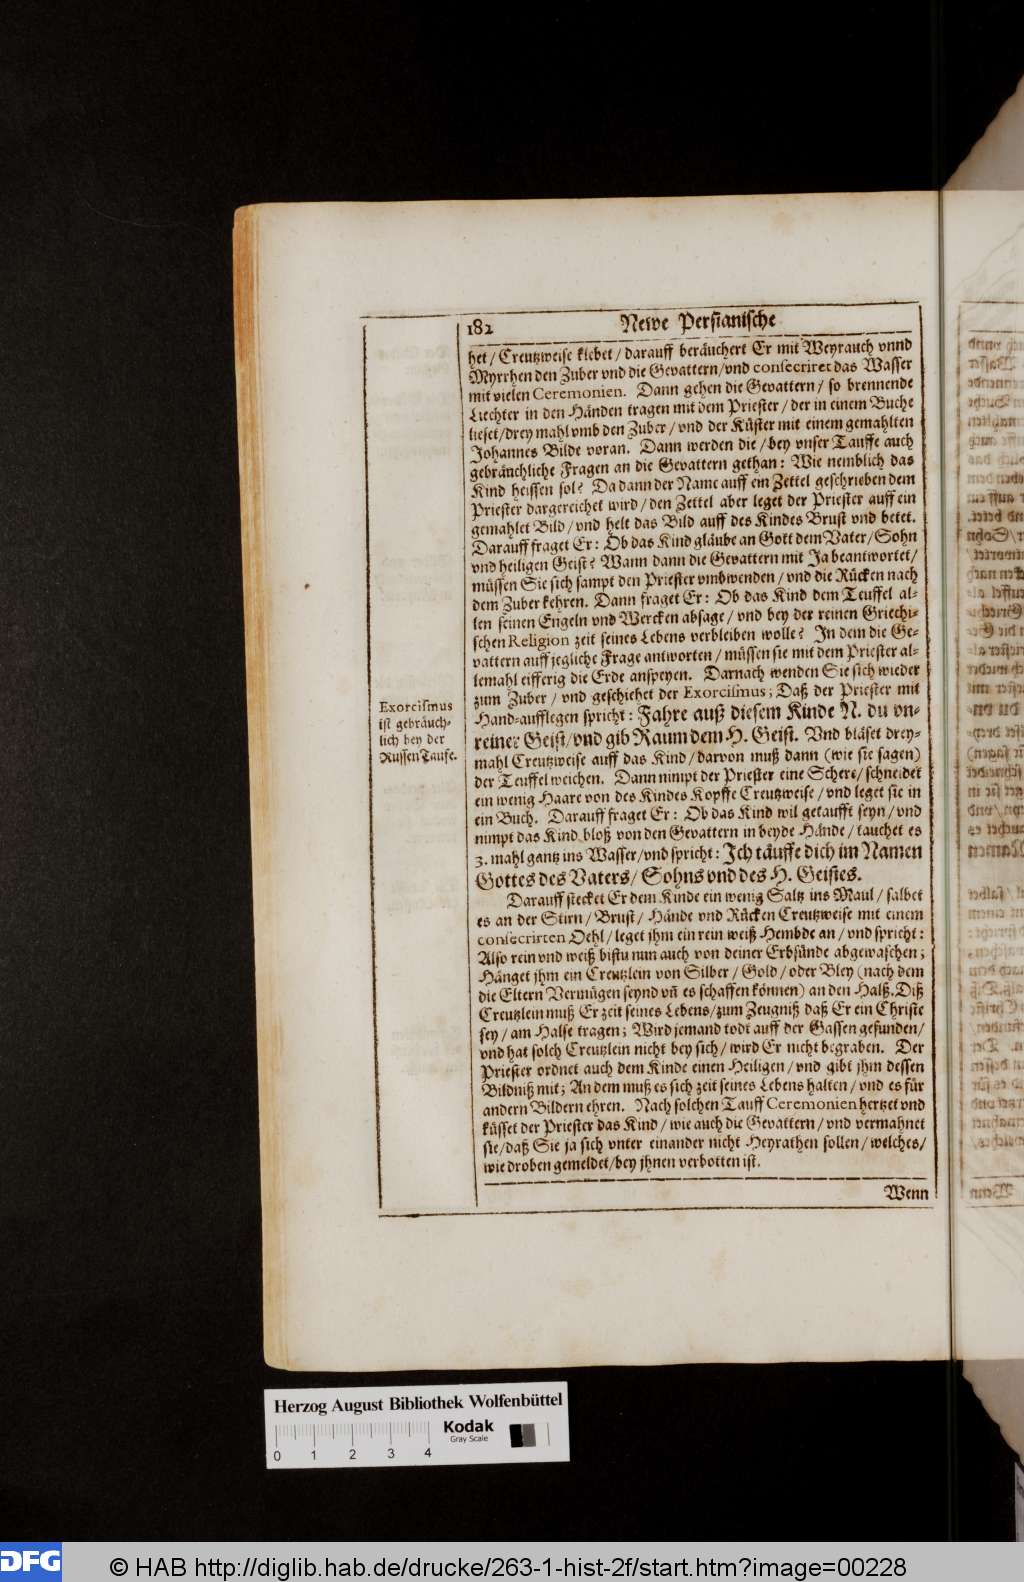 182
Newe Persianische
het / Creutzweise klebet / darauff beräuchert Er mit Weyrauch vnnd
Myrrhen den Zuber vnd die Gevattern / vnd consecriret das Wasser
mit vielen Ceremonien. Dann gehen die Gevattern / so brennende
Liechter in den Händen tragen mit dem Priester / der in einem Buche
lieset / drey mahl vmb den Zuber / vnd der Küster mit einem gemahlten
Johannes Bilde voran. Dann werden die / bey vnser Tauffe auch
gebräuchliche Fragen an die Gevattern gethan: Wie nemblich das
Kind heissen sol? Da dann der Name auff ein Zettel geschrieben dem
Priester dargereichet wird / den Zettel aber leget der Priester auff ein
gemahlet Bild / vnd helt das Bild auff des Kindes Brust vnd betet.
Darauff fraget Er: Ob das Kind gläube an Gott dem Vater / Sohn
vnd heiligen Geist? Wann dann die Gevattern mit Ja beantwortet /
müssen Sie sich sampt den Priester vmbwenden / vnd die Rücken nach
dem Zuber kehren. Dann fraget Er: Ob das Kind dem Teuffel al-
len seinen Engeln vnd Wercken absage / vnd bey der reinen Griechi-
schen Religion zeit seines Lebens verbleiben wolle? In dem die Ge-
vattern auff jegliche Frage antworten / müssen sie mit dem Priester al-
lemahl eifferig die Erde anspeyen. Darnach wenden Sie sich wieder
zum Zuber / vnd geschiehet der Exorcismus; Daß der Priester mit
Hand-aufflegen spricht: Fahre auß diesem Kinde N. du vn-
reiner Geist / vnd gib Raum dem H. Geist. Vnd bläset drey-
mahl Creutzweise auff das Kind / darvon muß dann (wie sie sagen)
der Teuffel weichen. Dann nimpt der Priester eine Schere / schneidet
ein wenig Haare von des Kindes Kopffe Creutzweise / vnd leget sie in
ein Buch. Darauff fraget Er: Ob das Kind wil getaufft seyn / vnd
nimpt das Kind bloß von den Gevattern in beyde Hände / tauchet es
3. mahl gantz ins Wasser / vnd spricht: Ich täuffe dich im Namen
Gottes des Vaters / Sohns vnd des H. Geistes.
Darauff stecket Er dem Kinde ein wenig Saltz ins Maul / salbet
es an der Stirn / Brust / Hände vnd Rücken Creutzweise mit einem
consecrirten Oehl / leget jhm ein rein weiß Hembde an / vnd spricht:
Also rein vnd weiß bistu nun auch von deiner Erbsünde abgewaschen;
Hänget jhm ein Creutzlein von Silber / Gold / oder Bley (nach dem
die Eltern Vermügen seynd vñ es schaffen können) an den Halß. Diß
Creutzlein muß Er zeit seines Lebens / zum Zeugniß daß Er ein Christe
sey / am Halse tragen; Wird jemand todt auff der Gassen gefunden /
vnd hat solch Creutzlein nicht bey sich / wird Er nicht begraben. Der
Priester ordnet auch dem Kinde einen Heiligen / vnd gibt jhm dessen
Bildniß mit; An dem muß es sich zeit seines Lebens halten / vnd es für
andern Bildern ehren. Nach solchen Tauff Ceremonien hertzet vnd
küsset der Priester das Kind / wie auch die Gevattern / vnd vermahnet
sie / daß Sie ja sich vnter einander nicht Heyrathen sollen / welches /
wie droben gemeldet / bey jhnen verbotten ist.
Wenn
Exorcismus
ist gebräuch-
lich bey der
Russen Taufe.
Herzog August Bibliothek Wolfenbüttel
Kodak
Gray Scale
0 1 2 3 4
DFG
© HAB http://diglib.hab.de/drucke/263-1-hist-2f/start.htm?image=00228